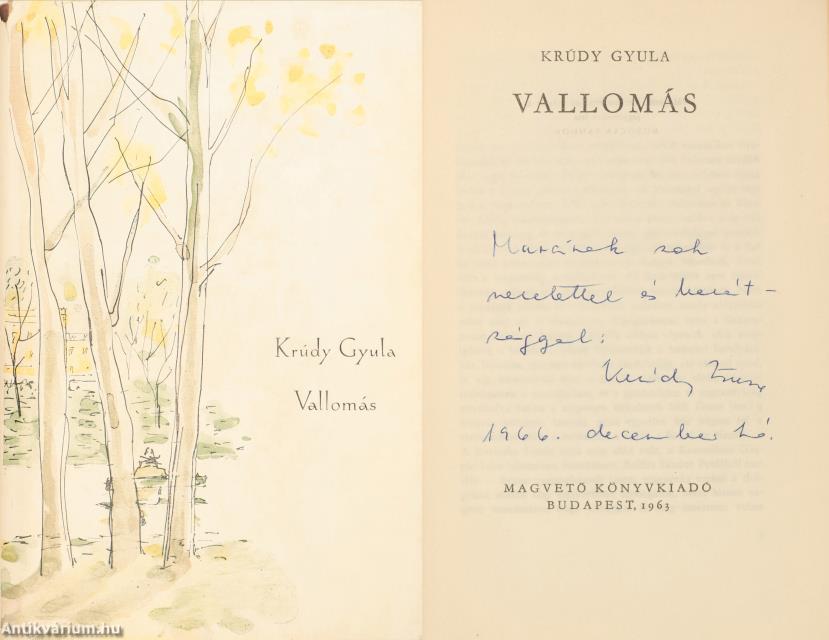 Krúdy Gyula
Vallomás
Antikvárium.hu
KRÚDY GYULA
VALLOMÁS
sok
szeretettel és barát-
sággal:
Krúdy Zsuzsa
1966. december hó.
MAGVETŐ KÖNYVKIADÓ
BUDAPEST, 1963